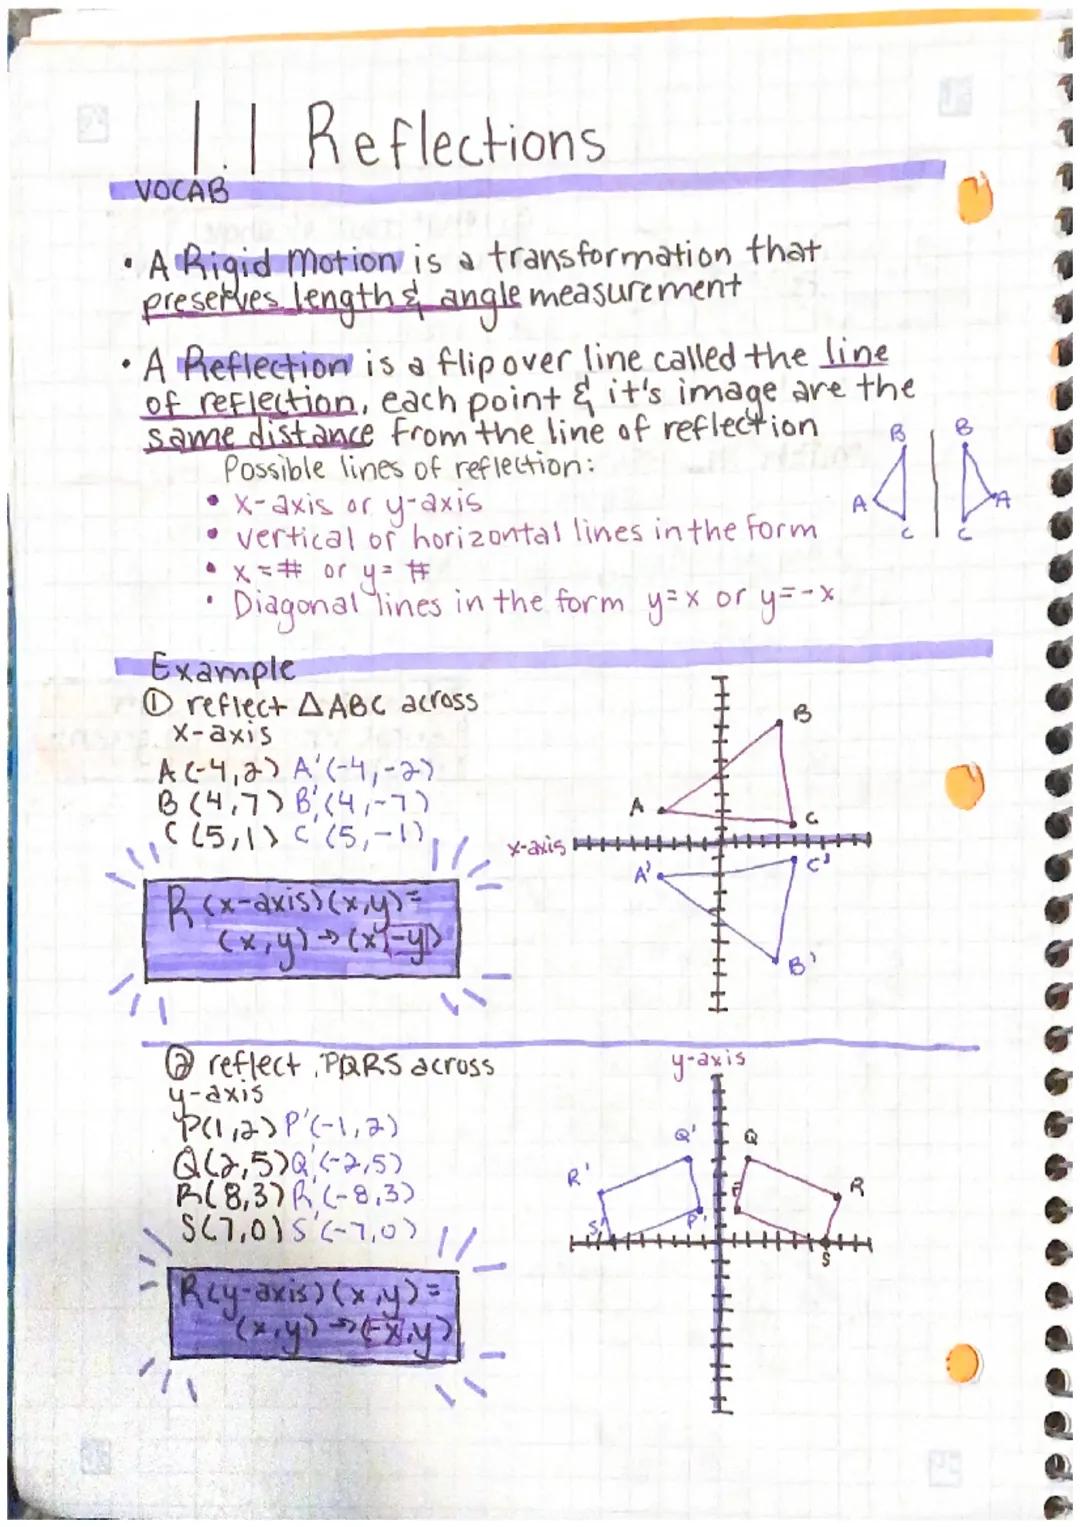 1.1 Reflections
VOCAB
• A Rigid Motion is a transformation that
preserves length & angle measurement
• A Reflection is a flip over line called the line
of reflection, each point & it's image are the
same distance from the line of reflection
Possible lines of reflection:
• x-axis or y-axis
• vertical or horizontal lines in the form
• x = # or y = #
• Diagonal lines in the form y=x or y=-x
B B
A A
C C
Example
① reflect △ABC across
x-axis
A(-4,2) A'(-4,-2)
B(4,7) B'(4,-7)
C(5,1) C'(5,-1)
R(x-axis)(x,y)=
(x,y)→(x,-y)
B
A
C
x-axis
A' C'
B'
② reflect PQRS across
y-axis
P(1,2) P'(-1,2)
Q(2,5) Q'(-2,5)
R(8,3) R'(-8,3)
S(7,0) S'(-7,0)
R(y-axis)(x,y)=
(x,y)→(-x,y)
y-axis
Q' Q
R' R
P
S' P'
S